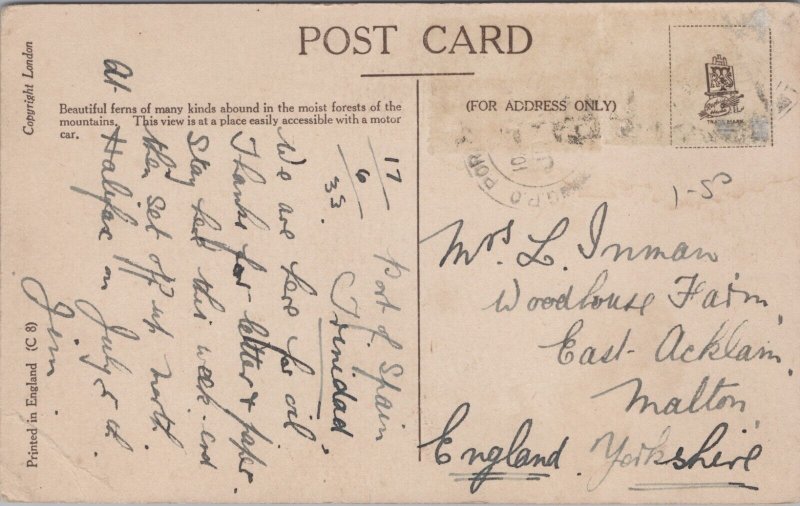 POST CARD
Copyright London
Beautiful ferns of many kinds abound in the moist forests of the
mountains. This view is at a place easily accessible with a motor
car.
(FOR ADDRESS ONLY)
TRADE MARK
G.P.O. POR
1-50
17
6
33.
Port of Spain
Trinidad.
We are here for oil,
Thanks for letter & paper.
Stay here this week-end
then set off up north.
At Halifax on July
Jim.
Mrs. L. Inman
Woodhouse Farm,
East-Acklam,
Malton,
Yorkshire
England.
Printed in England (C 8)